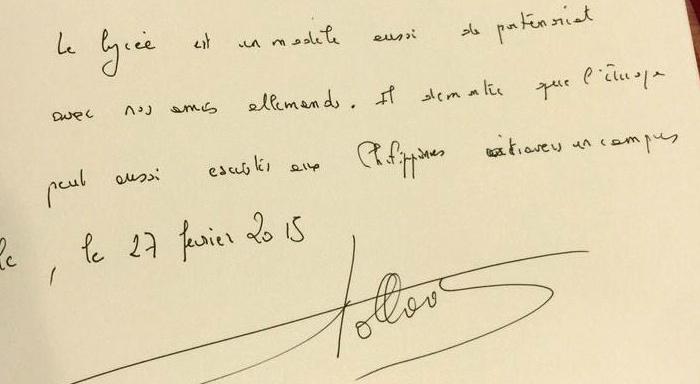 Le lycée est un modèle aussi de partenariat
avec nos amis allemands. Il démontre que l'Europe
peut aussi exister aux Philippines à travers un campus
le, le 27 février 2015
Hollande